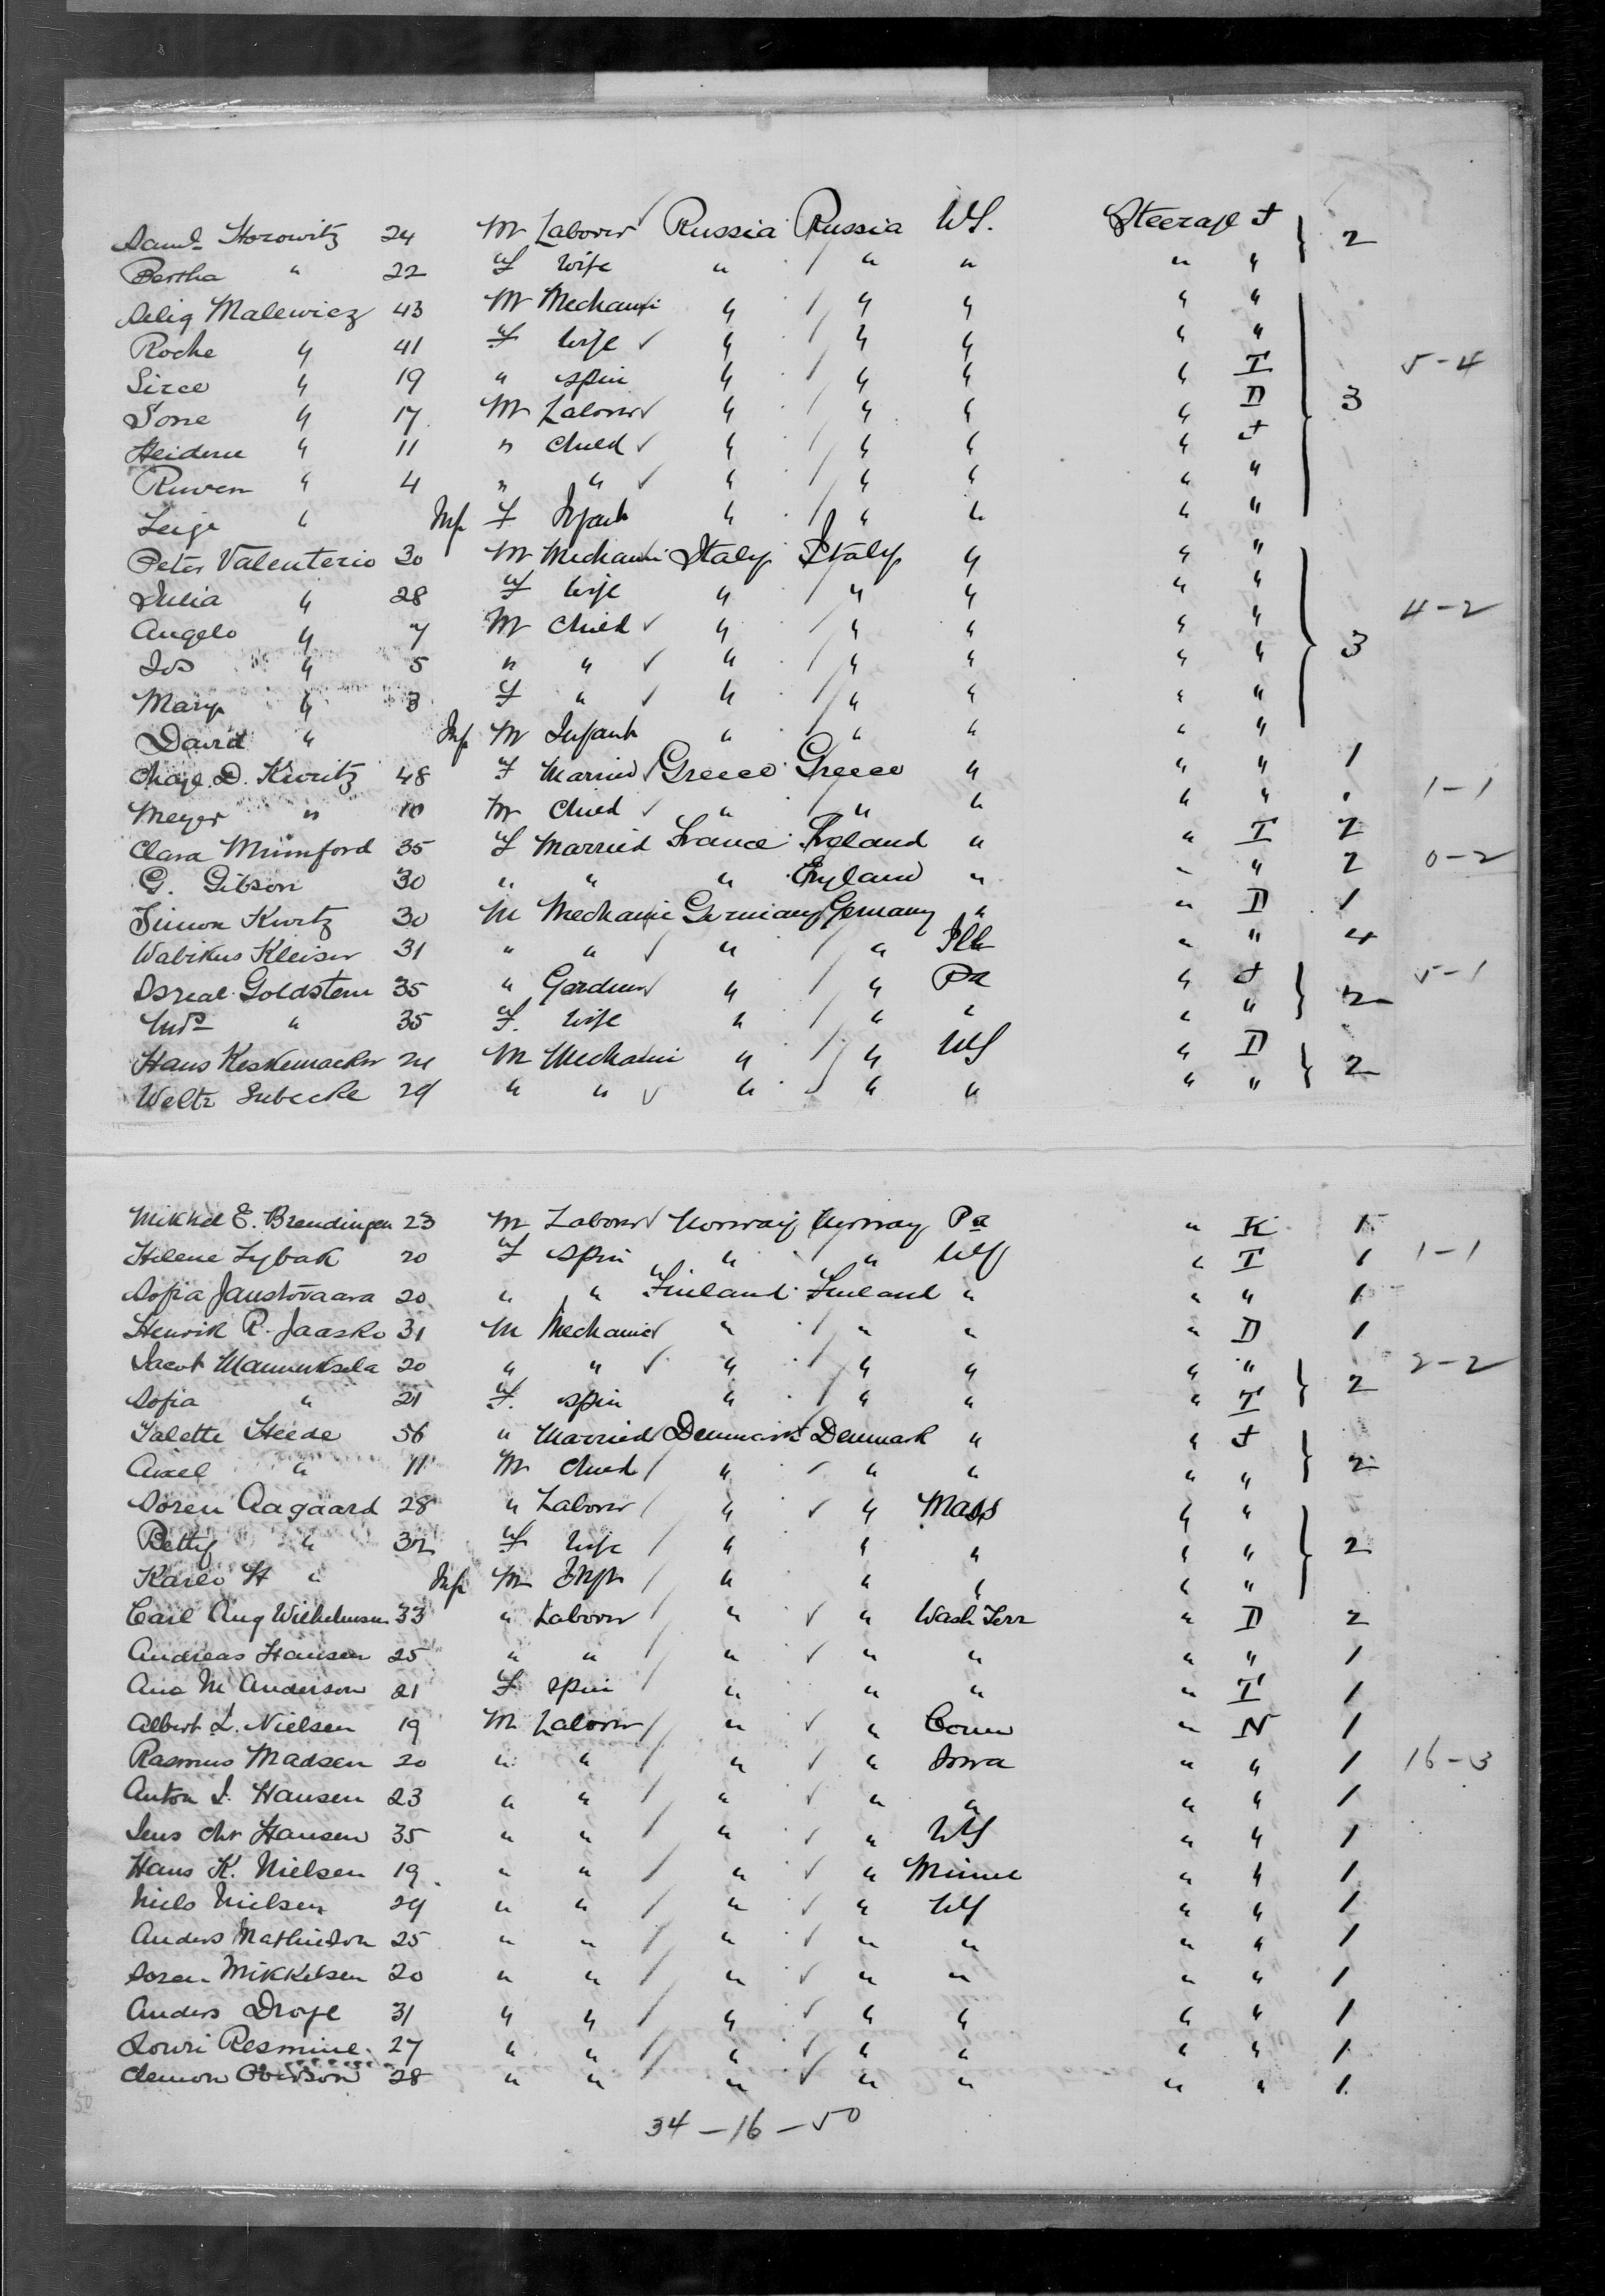 Saml Horowitz 24 M Laborer Russia Russia US. Steerage J } 2
Bertha " 22 F wife " " " " "
Selig Malewicz 43 M Mechanic " " " " "
Roche " 41 F wife " " " " "
Sirce " 19 " spin " " " " I 5-4
Sone " 17 M Laborer " " " " D } 3
Heidem " 11 " child " " " " J
Ruwen " 4 " " " " " " "
Leije " Inf F Infant " " " " "
Peter Valenterio 30 M Mechanic Italy Italy " " "
Julia " 28 F wife " " " " "
Angelo " 7 M child " " " " " 4-2
Jos " 5 " " " " " " " } 3
Mary " 3 F " " " " " "
David " Inf M Infant " " " " "
Chaje D. Kuritz 48 F Married Greece Greece " " " 1
Meyer " 10 M child " " " " " 1-1
Clara Mumford 35 F Married France England " " I 2
G. Gibson 30 " " " England " " " 2 0-2
Simon Kurtz 30 M Mechanic Germany Germany " " D 1
Wabikus Kleiser 31 " " " " Ills " " 4
Isreal Goldstein 35 " Gardener " " Pa " J 5-1
Mrs " 35 F. wife " " " " " } 2
Hans Keskemacker 24 M Mechanic " " US " D
Weltz Subecke 29 " " " " " " " } 2
Mikkel E. Brendingen 23 M Laborer Norway Norway Pa " K 1
Helene Lybak 20 F spin " " US " I 1 1-1
Sofia Jaustovaara 20 " " Finland Finland " " " 1
Henrik P. Jaasko 31 M Mechanic " " " " D 1
Jacob Mannuksela 20 " " " " " " " 2-2
Sofia " 21 F. spin " " " " I } 2
Jalette Heede 56 " Married Denmark Denmark " " J
Axel " 11 M child " " " " " } 2
Soren Aagaard 28 " Laborer " " Mass " "
Betty " 32 F wife " " " " " } 2
Karlo H " Inf M Inft " " " " "
Carl Aug Wilhelmsen 33 " Laborer " " Wash Terr " D 2
Andreas Hansen 25 " " " " " " " 1
Ana M Anderson 21 F spin " " " " I 1
Albert L. Nielsen 19 M Laborer " " Conn " N 1
Rasmus Madsen 20 " " " " Iowa " " 1 16-3
Anton J. Hansen 23 " " " " " " " 1
Jens Chr Hansen 35 " " " " US " " 1
Hans K. Nielsen 19 " " " " Minne " " 1
Niels Nielsen 29 " " " " US " " 1
Anders Mathieson 25 " " " " " " " 1
Soren Mikkelsen 20 " " " " " " " 1
Anders Droye 31 " " " " " " " 1
Lowri Resmine 27 " " " " " " " 1
Clemon Oberson 28 " " " " " " " 1
50
34-16-50